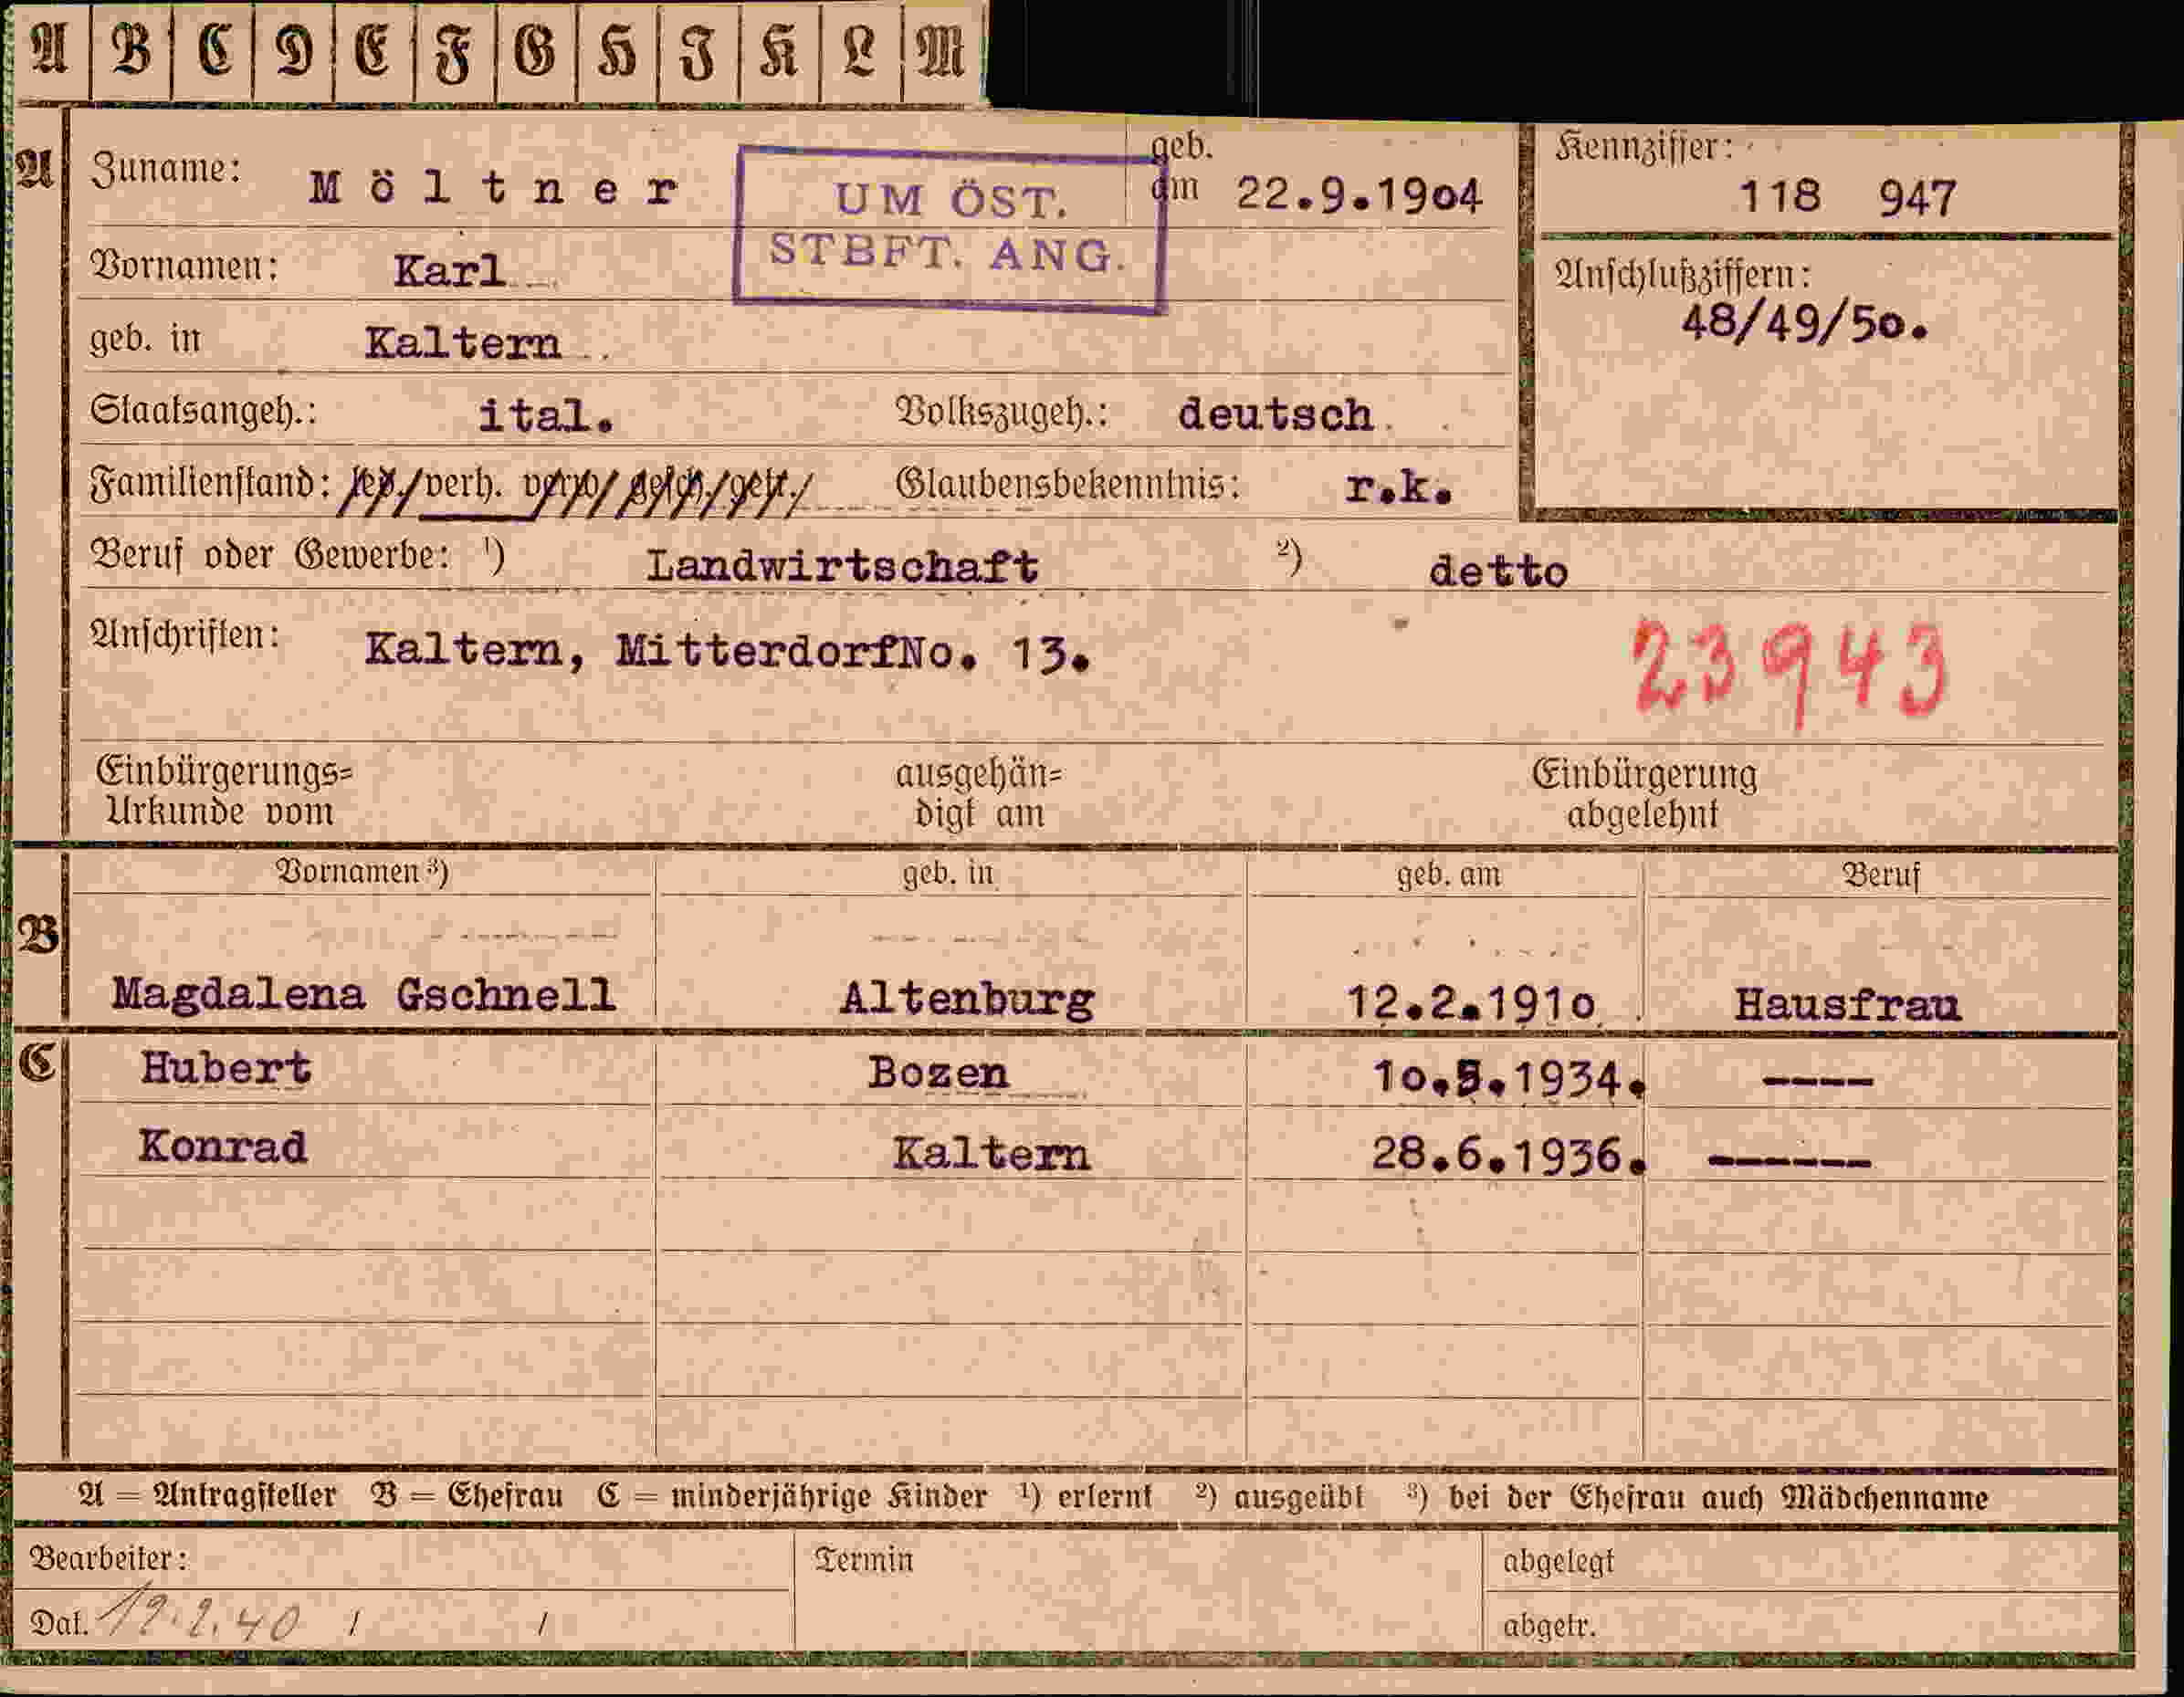 A B C D E F G H J K L M
A Zuname: Möltner geb. am 22.9.1904 Kennziffer: 118 947
UM ÖST.
STBFT. ANG.
Vornamen: Karl
Anschlußziffern: 48/49/50.
geb. in Kaltern
Staatsangeh.: ital. Volkszugeh.: deutsch
Familienstand: led./verh. verw/gesch./getr./ Glaubensbekenntnis: r.k.
Beruf oder Gewerbe: ¹) Landwirtschaft ²) detto
Anschriften: Kaltern, MitterdorfNo. 13.
23943
Einbürgerungs= ausgehän= Einbürgerung
Urkunde vom digt am abgelehnt
Vornamen ³) geb. in geb. am Beruf
B
Magdalena Gschnell Altenburg 12.2.1910 Hausfrau
C Hubert Bozen 10.5.1934. ----
Konrad Kaltern 28.6.1936. ------
A = Antragsteller B = Ehefrau C = minderjährige Kinder ¹) erlernt ²) ausgeübt ³) bei der Ehefrau auch Mädchenname
Bearbeiter: Termin abgelegt
Dat. 12.2.40 / / abgetr.